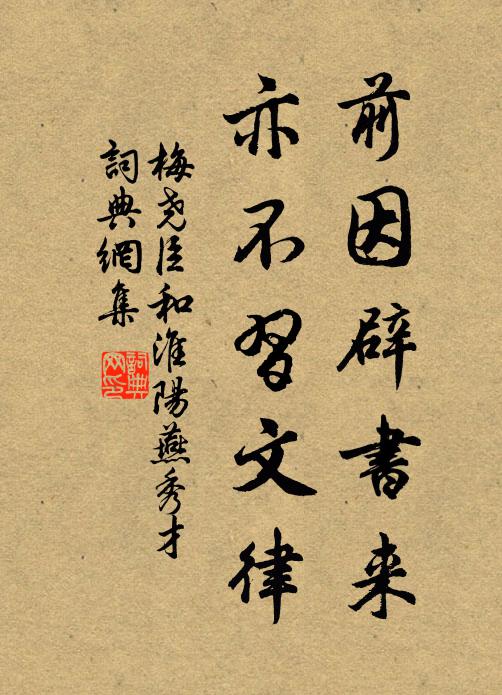 前因辟書来
亦不習文律
梅尭臣和淮陽燕秀才
詞典網集
詞典网印